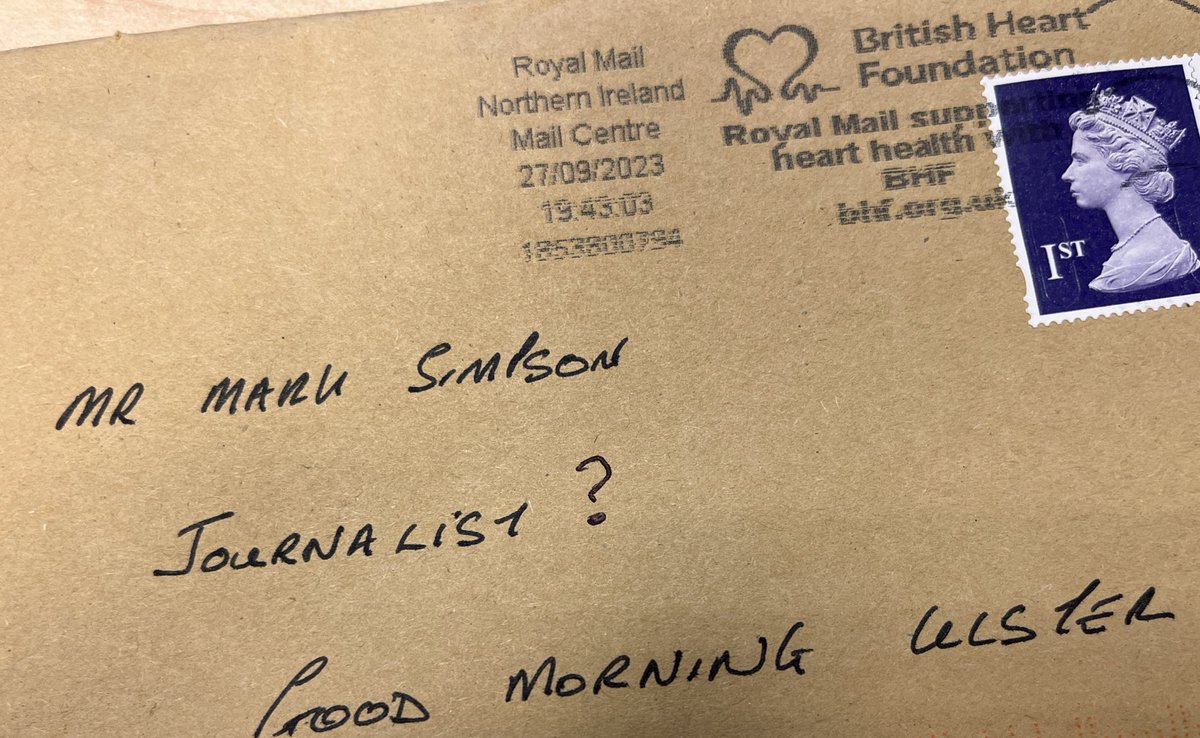 Royal Mail
Northern Ireland
Mail Centre
27/09/2023
19:43:03
1853800794
British Heart
Foundation
Royal Mail supporting
heart health with
BHF
bhf.org.uk
1ST
MR MARK SIMPSON
JOURNALIST ?
GOOD MORNING ULSTER